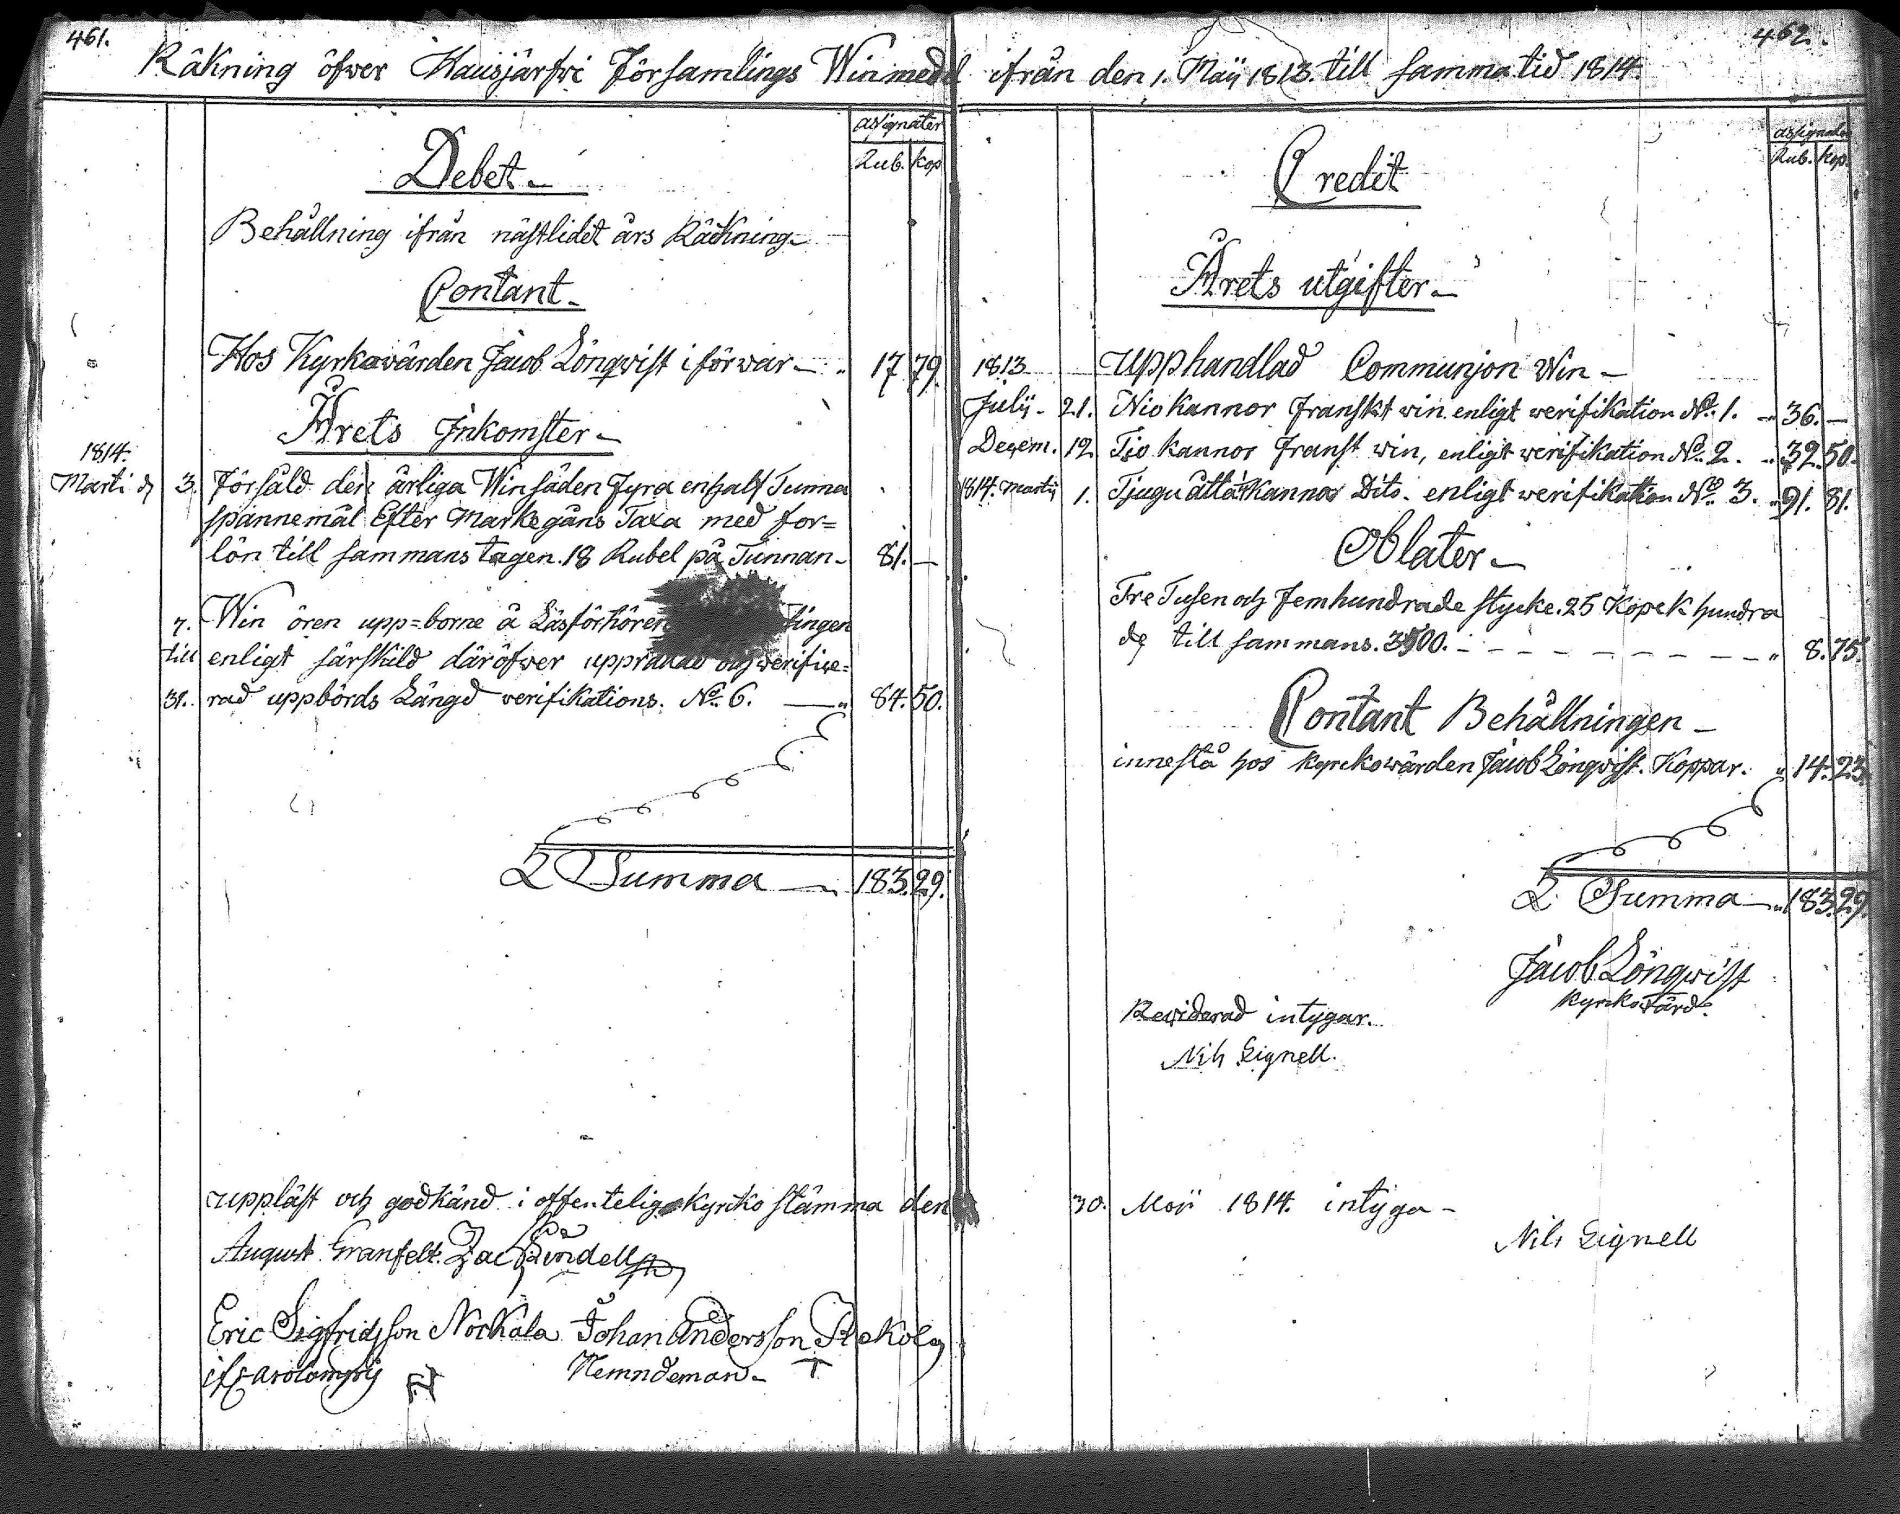 461.
462.
Räkning öfver Hausjärfwi Församlings Winmedel ifrån den 1. Maÿ 1813. till samma tid 1814.
assignater
Rub. Kop
Debet.
Behållning ifrån nästlidet års Räckning
Contant
Hos Kyrkovärden Jacob Lönqvist i förwar 17 79.
Årets Inkomster
1814.
Marti d 3. Försåld den årliga Winsäden Fyra en half Tunna
spannemål Efter Markegångs Taxa med for=
lön till sammans tagen. 18 Rubel på Tunnan 81. —
7. Win ören upp=borne å Läsförhören
till enligt särskild däröfwer upprättad och verifice=
31. rad uppbörds Längd verifikations. No. 6. 84. 50.
Summa 183. 29.
uppläst och godkänd i offentelig Kyrko stämma den
August Granfelt. Zac Lindell
Eric Sigfridsson Norkala Johan Andersson
Nemndeman
assignater
Rub. Kop.
Credit
Årets utgifter
1813 Upphandlad Communjon Win
Julÿ 21. Nio kannor franskt win enligt verifikation No. 1. 36. —
Decem. 12. Tio kannor franst win, enligt verifikation No. 2. 32. 50.
1814. Martÿ 1. Tjugu åtta Kannor Dito. enligt verifikation No. 3. 91. 81.
Oblater
Tre Tusen och femhundrade stycke. 25 Kopek hundra
de till sammans. 3500. 8. 75.
Contant Behållningen
innestå hos kyrckowärden Jacob Lönqvist. Koppar. 14. 23.
Summa 183. 29.
Jacob Lönqwist
kyrckowärd.
Reviderad intygar.
Nils Gignell.
30. Maÿ 1814. intyga
Nils Gignell